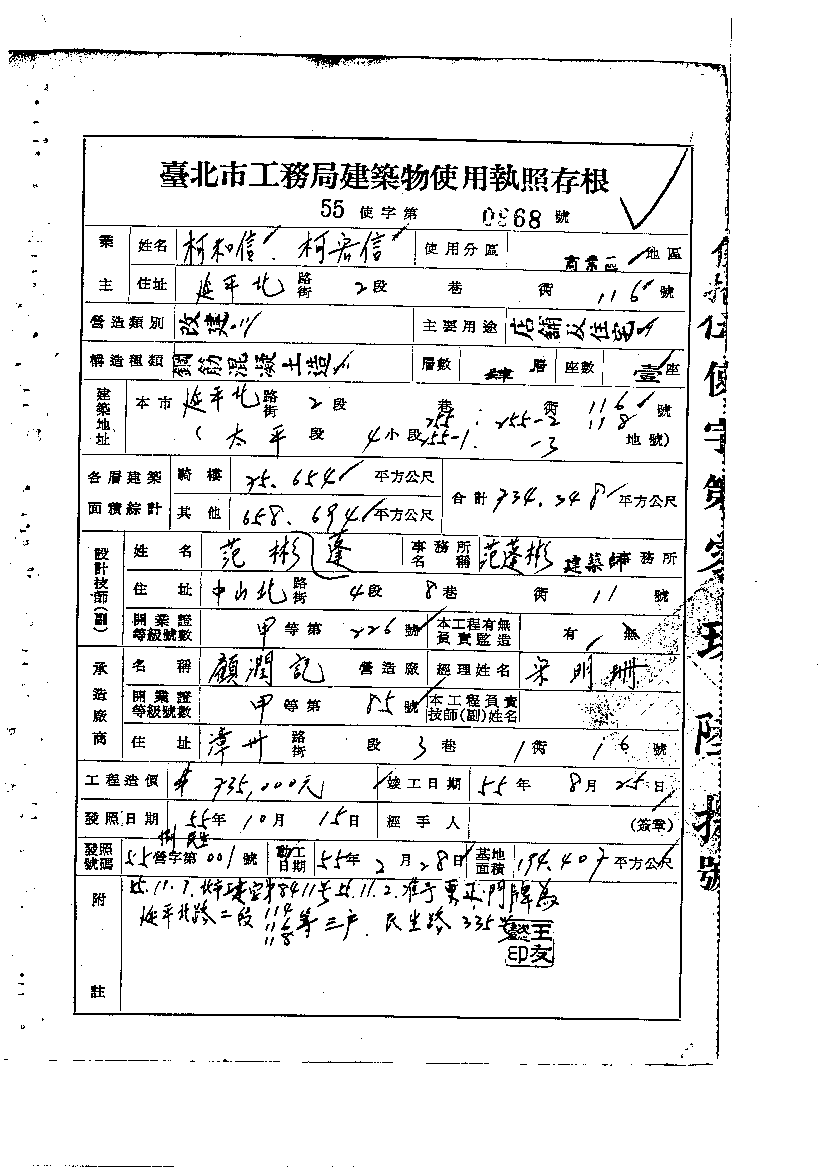 臺北市工務局建築物使用執照存根
55 使字第 0968 號
業主 姓名 柯和信 柯宏信 使用分區 商業區 地區
住址 延平北 路街 2段 巷 街 116 號
營造類別 改建 主要用途 店舖及住宅
構造種類 鋼筋混凝土造 層數 肆 層 座數 壹 座
建築地址 本市 延平北 路街 2段 巷 街 116 118 號
(太平 段 4小段 255 255-1 255-2 -3 地號)
各層建築面積綜計 騎樓 75.654 平方公尺 合計 734.348 平方公尺
其他 658.694 平方公尺
設計技師(副) 姓名 范彬蓬 事務所名稱 范蓬彬 建築師事務所
住址 中山北 路街 4段 8巷 街 11 號
開業證等級號數 甲 等第 226 號 本工程有無負責監造 有 無
承造廠商 名稱 顧潤記 營造廠 經理姓名 宋明珊
開業證等級號數 甲 等第 85 號 本工程負責技師(副)姓名
住址 漳州 路街 段 3巷 1街 16 號
工程造價 735,000元 竣工日期 55年 8月 25日
發照日期 55年 10月 15日 經手人 (簽章)
發照號碼 55營字第 001 號 動工日期 55年 2月 28日 基地面積 194.407 平方公尺
附註 55.11.7. 北市建字第8411號 55.11.2. 准予更正門牌為
延平北路二段 114 116 118 等三戶. 民生路 335號
王友懿印
使字第零玖陸捌號